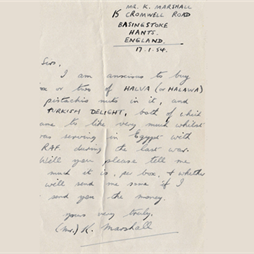 MR. K. MARSHALL
15 CROMWELL ROAD
BASINGSTOKE
HANTS.
ENGLAND.
17.1.54.
Sir,
I am anxious to buy
a or two of HALVA (or HALAWA)
pistachio nuts in it, and
TURKISH DELIGHT, both of which
one to like very much whilst
was serving in Egypt with
RAF. during the last war.
Will you please tell me
much it is, per box, & whether
will send me some if I
send you the money.
yours very truly,
(Mr.) K. Marshall